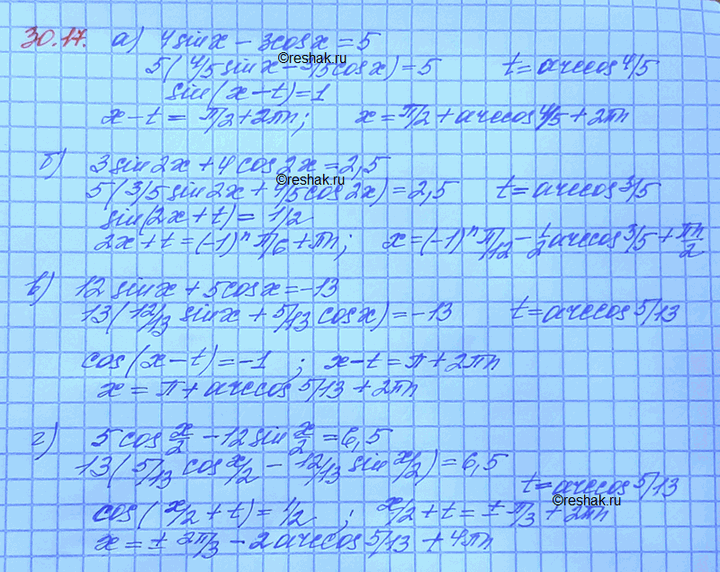 30.17. а) 4 sin x - 3 cos x = 5
©reshak.ru
5 ( 4/5 sin x - 3/5 cos x ) = 5 t = arccos 4/5
sin (x - t) = 1
x - t = π/2 + 2πn ; x = π/2 + arccos 4/5 + 2πn
б) 3 sin 2x + 4 cos 2x = 2,5
©reshak.ru
5 ( 3/5 sin 2x + 4/5 cos 2x) = 2,5 t = arccos 3/5
sin(2x + t) = 1/2
2x + t = (-1)ⁿ π/6 + πn ; x = (-1)ⁿ π/12 - 1/2 arccos 3/5 + πn/2
в) 12 sin x + 5 cos x = -13
13 ( 12/13 sin x + 5/13 cos x) = -13 t = arccos 5/13
cos (x - t) = -1 ; x - t = π + 2πn
x = π + arccos 5/13 + 2πn
г) 5 cos x/2 - 12 sin x/2 = 6,5
13 ( 5/13 cos x/2 - 12/13 sin x/2 ) = 6,5
t = arccos 5/13
©reshak.ru
cos ( x/2 + t) = 1/2 ; x/2 + t = ± π/3 + 2πn
x = ± 2π/3 - 2 arccos 5/13 + 4πn